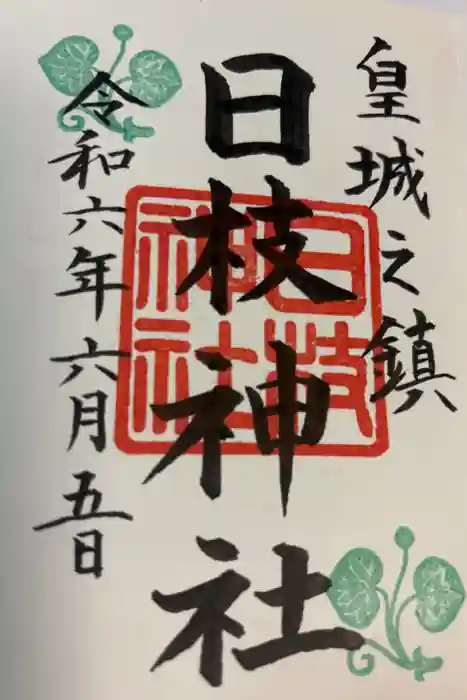 皇城之鎮
日枝神社
日枝神社
令和六年六月五日